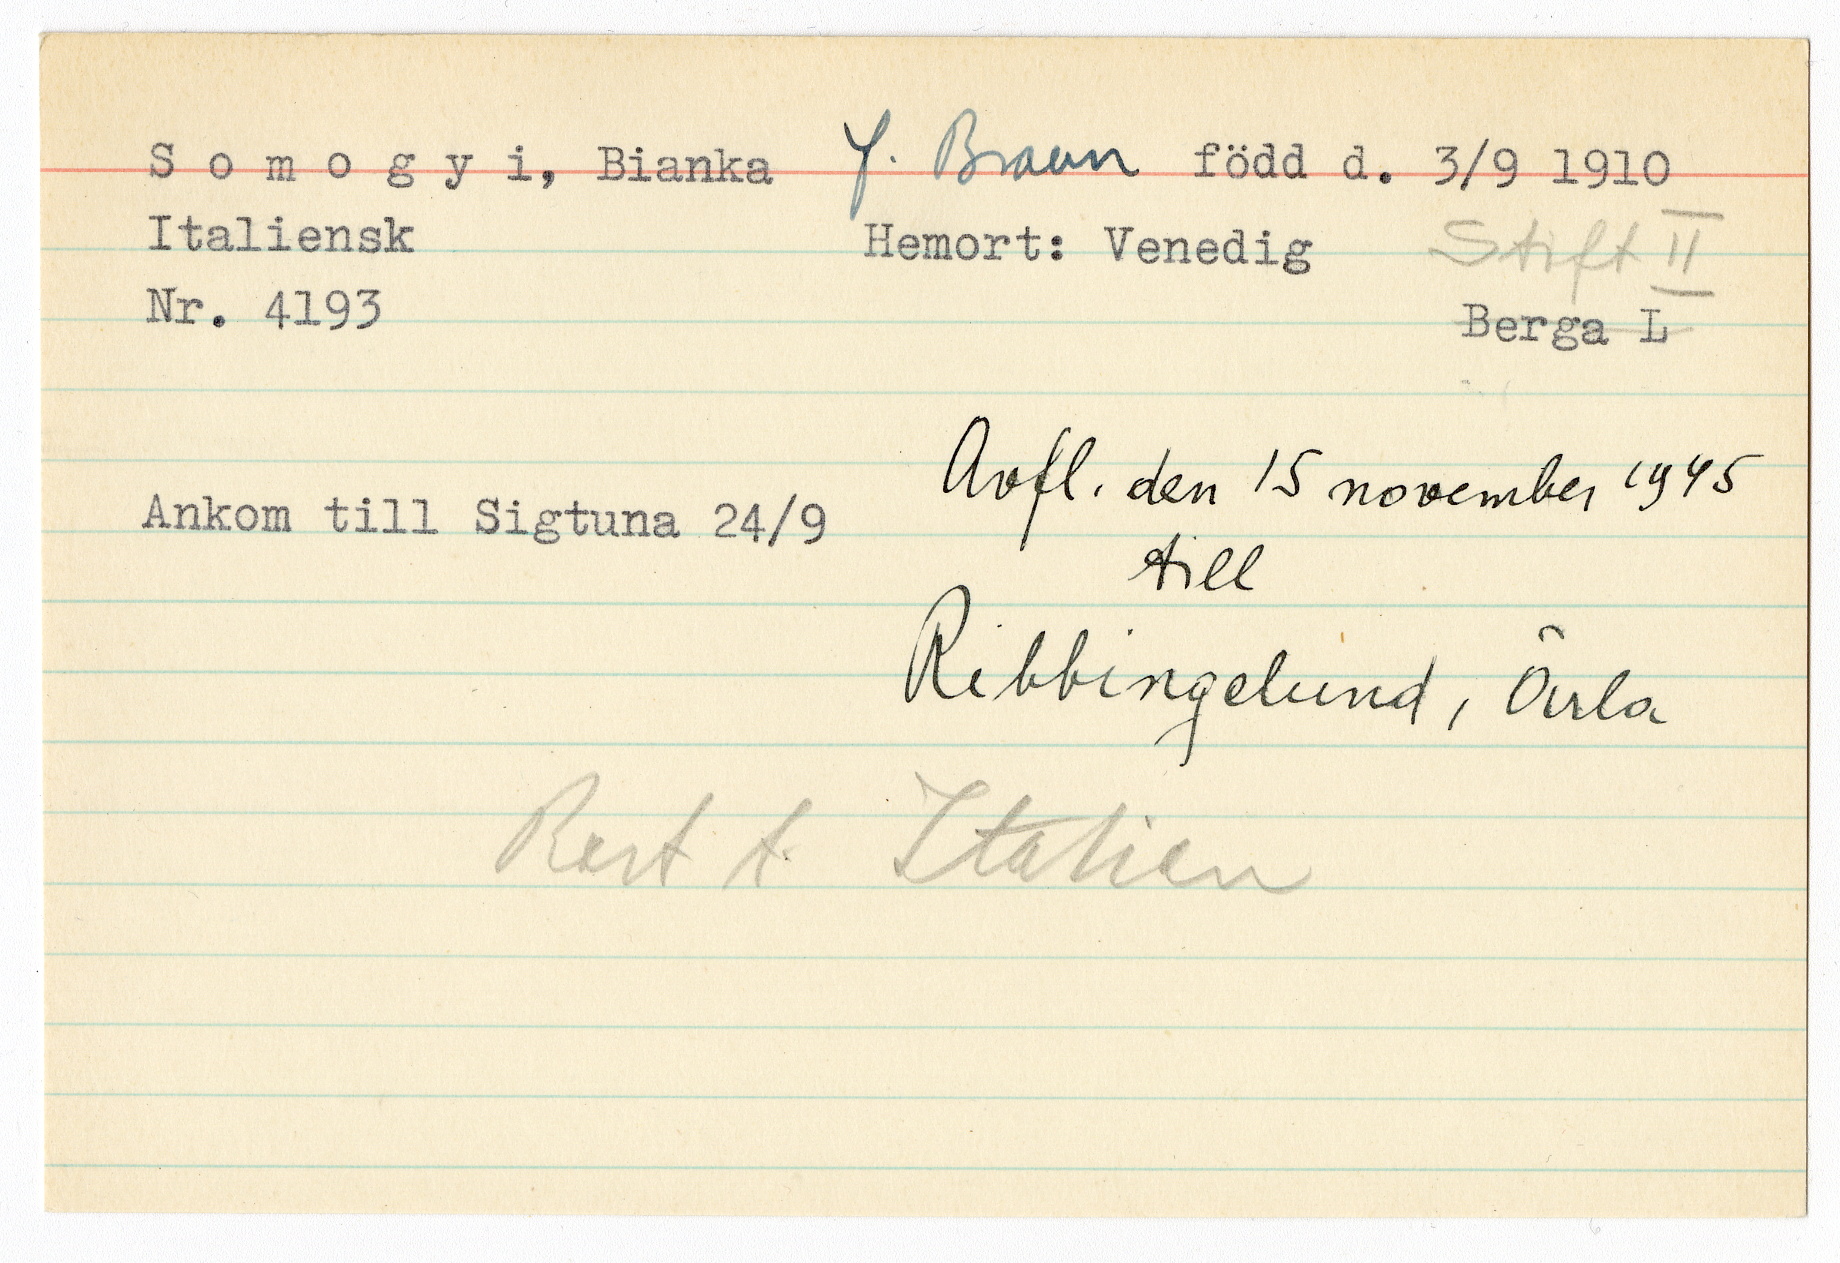 S o m o g y i, Bianka f. Braun född d. 3/9 1910
Italiensk Hemort: Venedig Stift II
Nr. 4193 Berga L
Avfl. den 15 november 1945
Ankom till Sigtuna 24/9
till
Ribbingelund, Ärla
Rest t. Italien